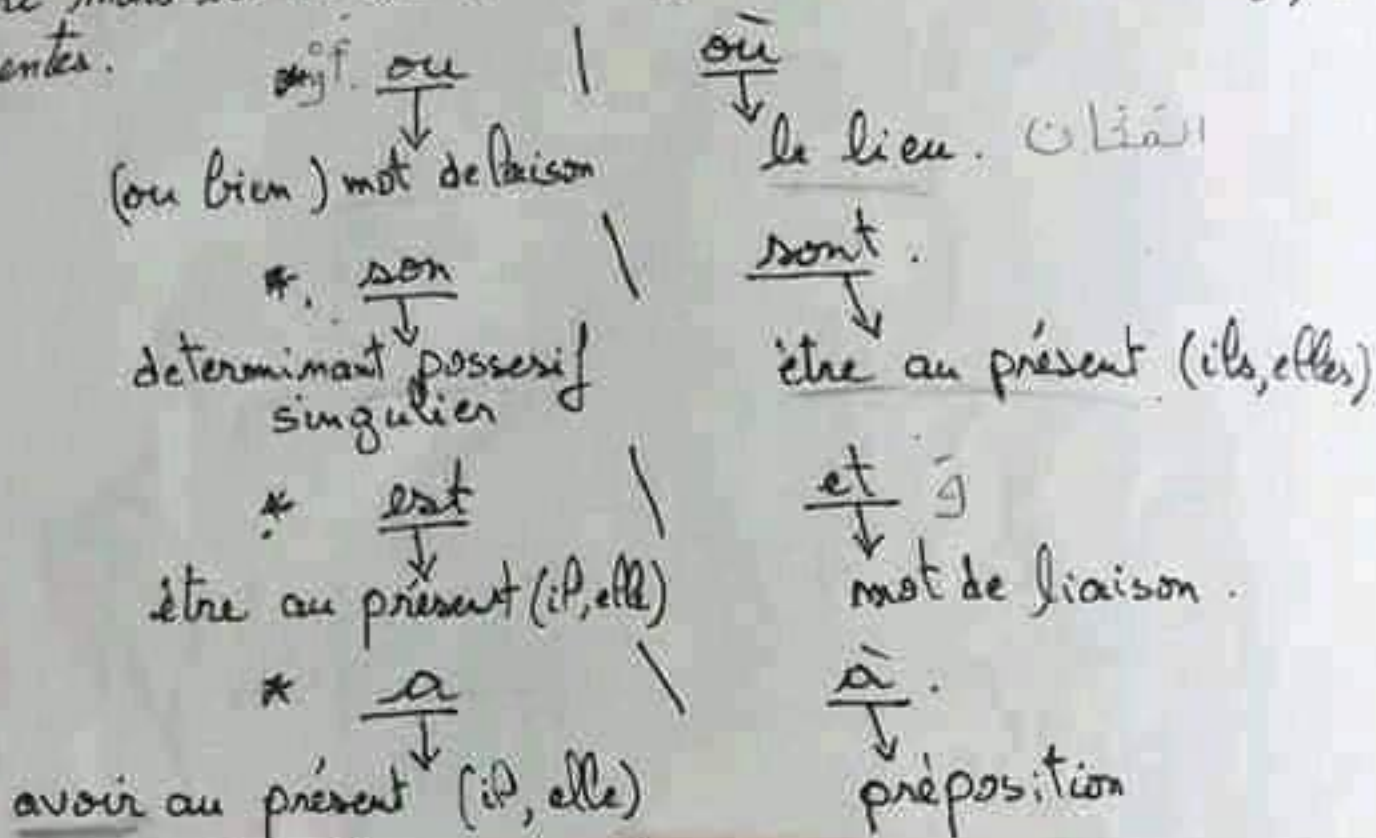 entes.
* أو. ou \ où
(ou bien) mot de liaison le lieu. المكان
*. son \ sont.
determinant possesif être au présent (ils, elles)
singulier
* est \ et وَ
être au présent (il, elle) mot de liaison.
* a \ à.
avoir au présent (il, elle) préposition